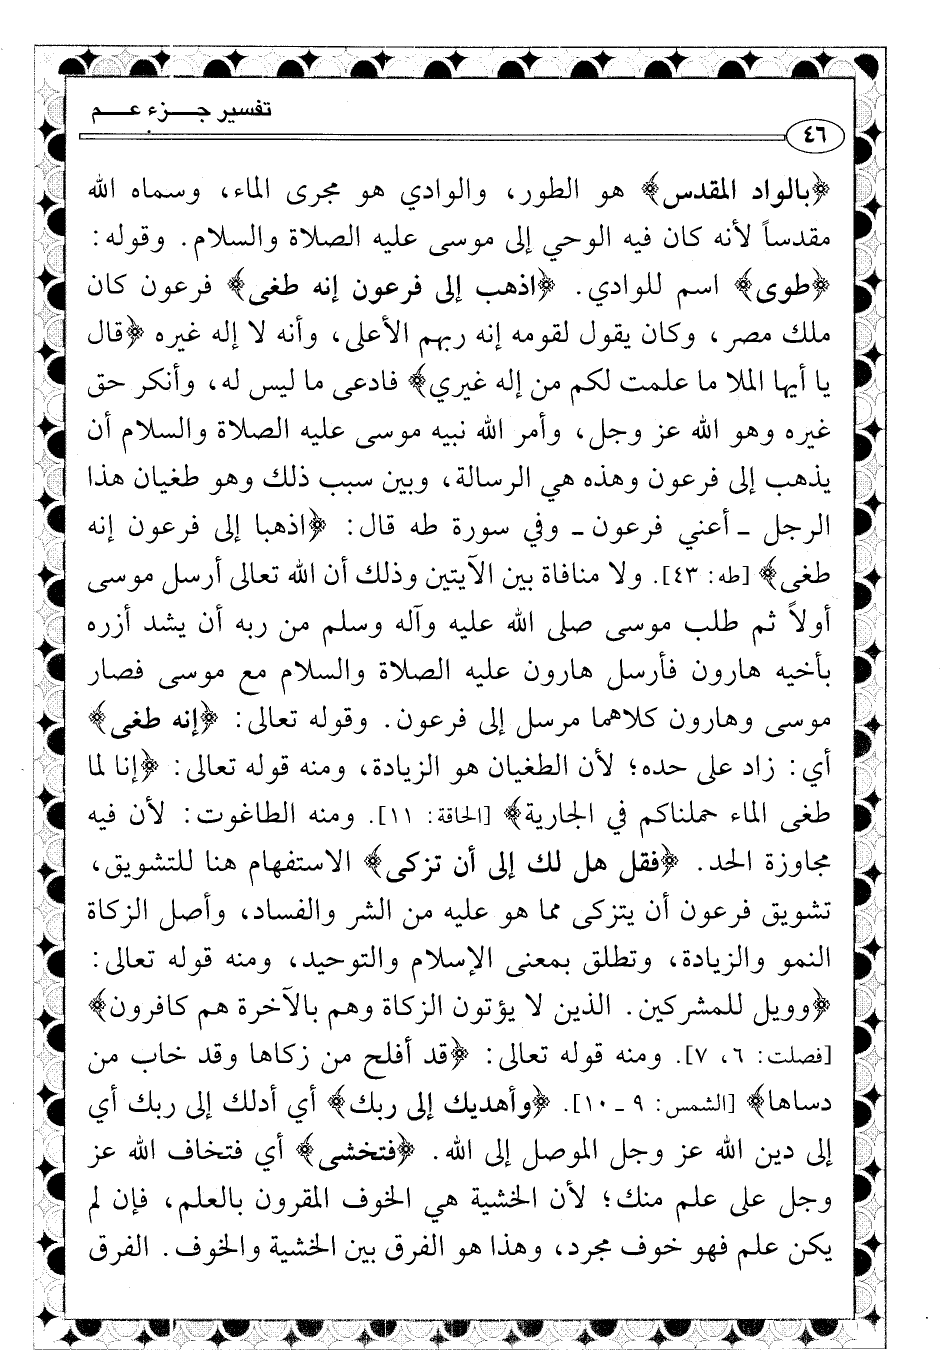 تفسير جـــزء عـــم
٤٦
﴿بالواد المقدس﴾ هو الطور، والوادي هو مجرى الماء، وسماه الله
مقدساً لأنه كان فيه الوحي إلى موسى عليه الصلاة والسلام. وقوله:
﴿طوى﴾ اسم للوادي. ﴿اذهب إلى فرعون إنه طغى﴾ فرعون كان
ملك مصر، وكان يقول لقومه إنه ربهم الأعلى، وأنه لا إله غيره ﴿قال
يا أيها الملا ما علمت لكم من إله غيري﴾ فادعى ما ليس له، وأنكر حق
غيره وهو الله عز وجل، وأمر الله نبيه موسى عليه الصلاة والسلام أن
يذهب إلى فرعون وهذه هي الرسالة، وبين سبب ذلك وهو طغيان هذا
الرجل ـ أعني فرعون ـ وفي سورة طه قال: ﴿اذهبا إلى فرعون إنه
طغى﴾ [طه: ٤٣]. ولا منافاة بين الآيتين وذلك أن الله تعالى أرسل موسى
أولاً ثم طلب موسى صلى الله عليه وآله وسلم من ربه أن يشد أزره
بأخيه هارون فأرسل هارون عليه الصلاة والسلام مع موسى فصار
موسى وهارون كلاهما مرسل إلى فرعون. وقوله تعالى: ﴿إنه طغى﴾
أي: زاد على حده؛ لأن الطغيان هو الزيادة، ومنه قوله تعالى: ﴿إنا لما
طغى الماء حملناكم في الجارية﴾ [الحاقة: ١١]. ومنه الطاغوت: لأن فيه
مجاوزة الحد. ﴿فقل هل لك إلى أن تزكى﴾ الاستفهام هنا للتشويق،
تشويق فرعون أن يتزكى مما هو عليه من الشر والفساد، وأصل الزكاة
النمو والزيادة، وتطلق بمعنى الإسلام والتوحيد، ومنه قوله تعالى:
﴿وويل للمشركين. الذين لا يؤتون الزكاة وهم بالآخرة هم كافرون﴾
[فصلت: ٦، ٧]. ومنه قوله تعالى: ﴿قد أفلح من زكاها وقد خاب من
دساها﴾ [الشمس: ٩ ـ ١٠]. ﴿وأهديك إلى ربك﴾ أي أدلك إلى ربك أي
إلى دين الله عز وجل الموصل إلى الله. ﴿فتخشى﴾ أي فتخاف الله عز
وجل على علم منك؛ لأن الخشية هي الخوف المقرون بالعلم، فإن لم
يكن علم فهو خوف مجرد، وهذا هو الفرق بين الخشية والخوف. الفرق